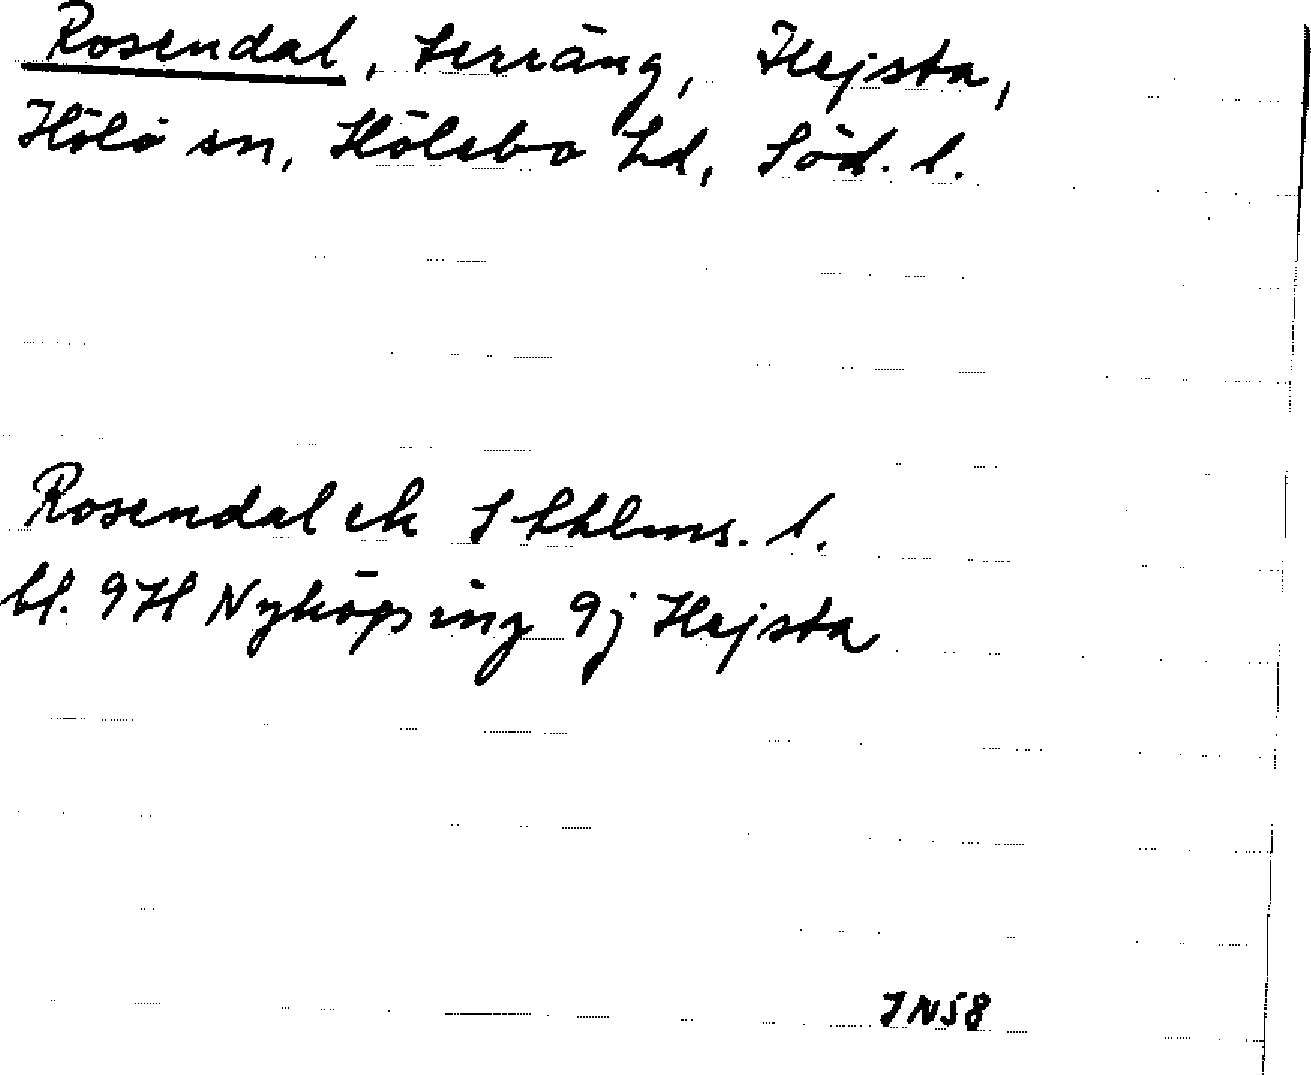 Rosendal, terräng, Hejsta,
Hölö sn, Hölebo hd, Söd. l.
Rosendal ek Sthlms. l.
bl. 9H Nyköping 9j Hejsta
JN58